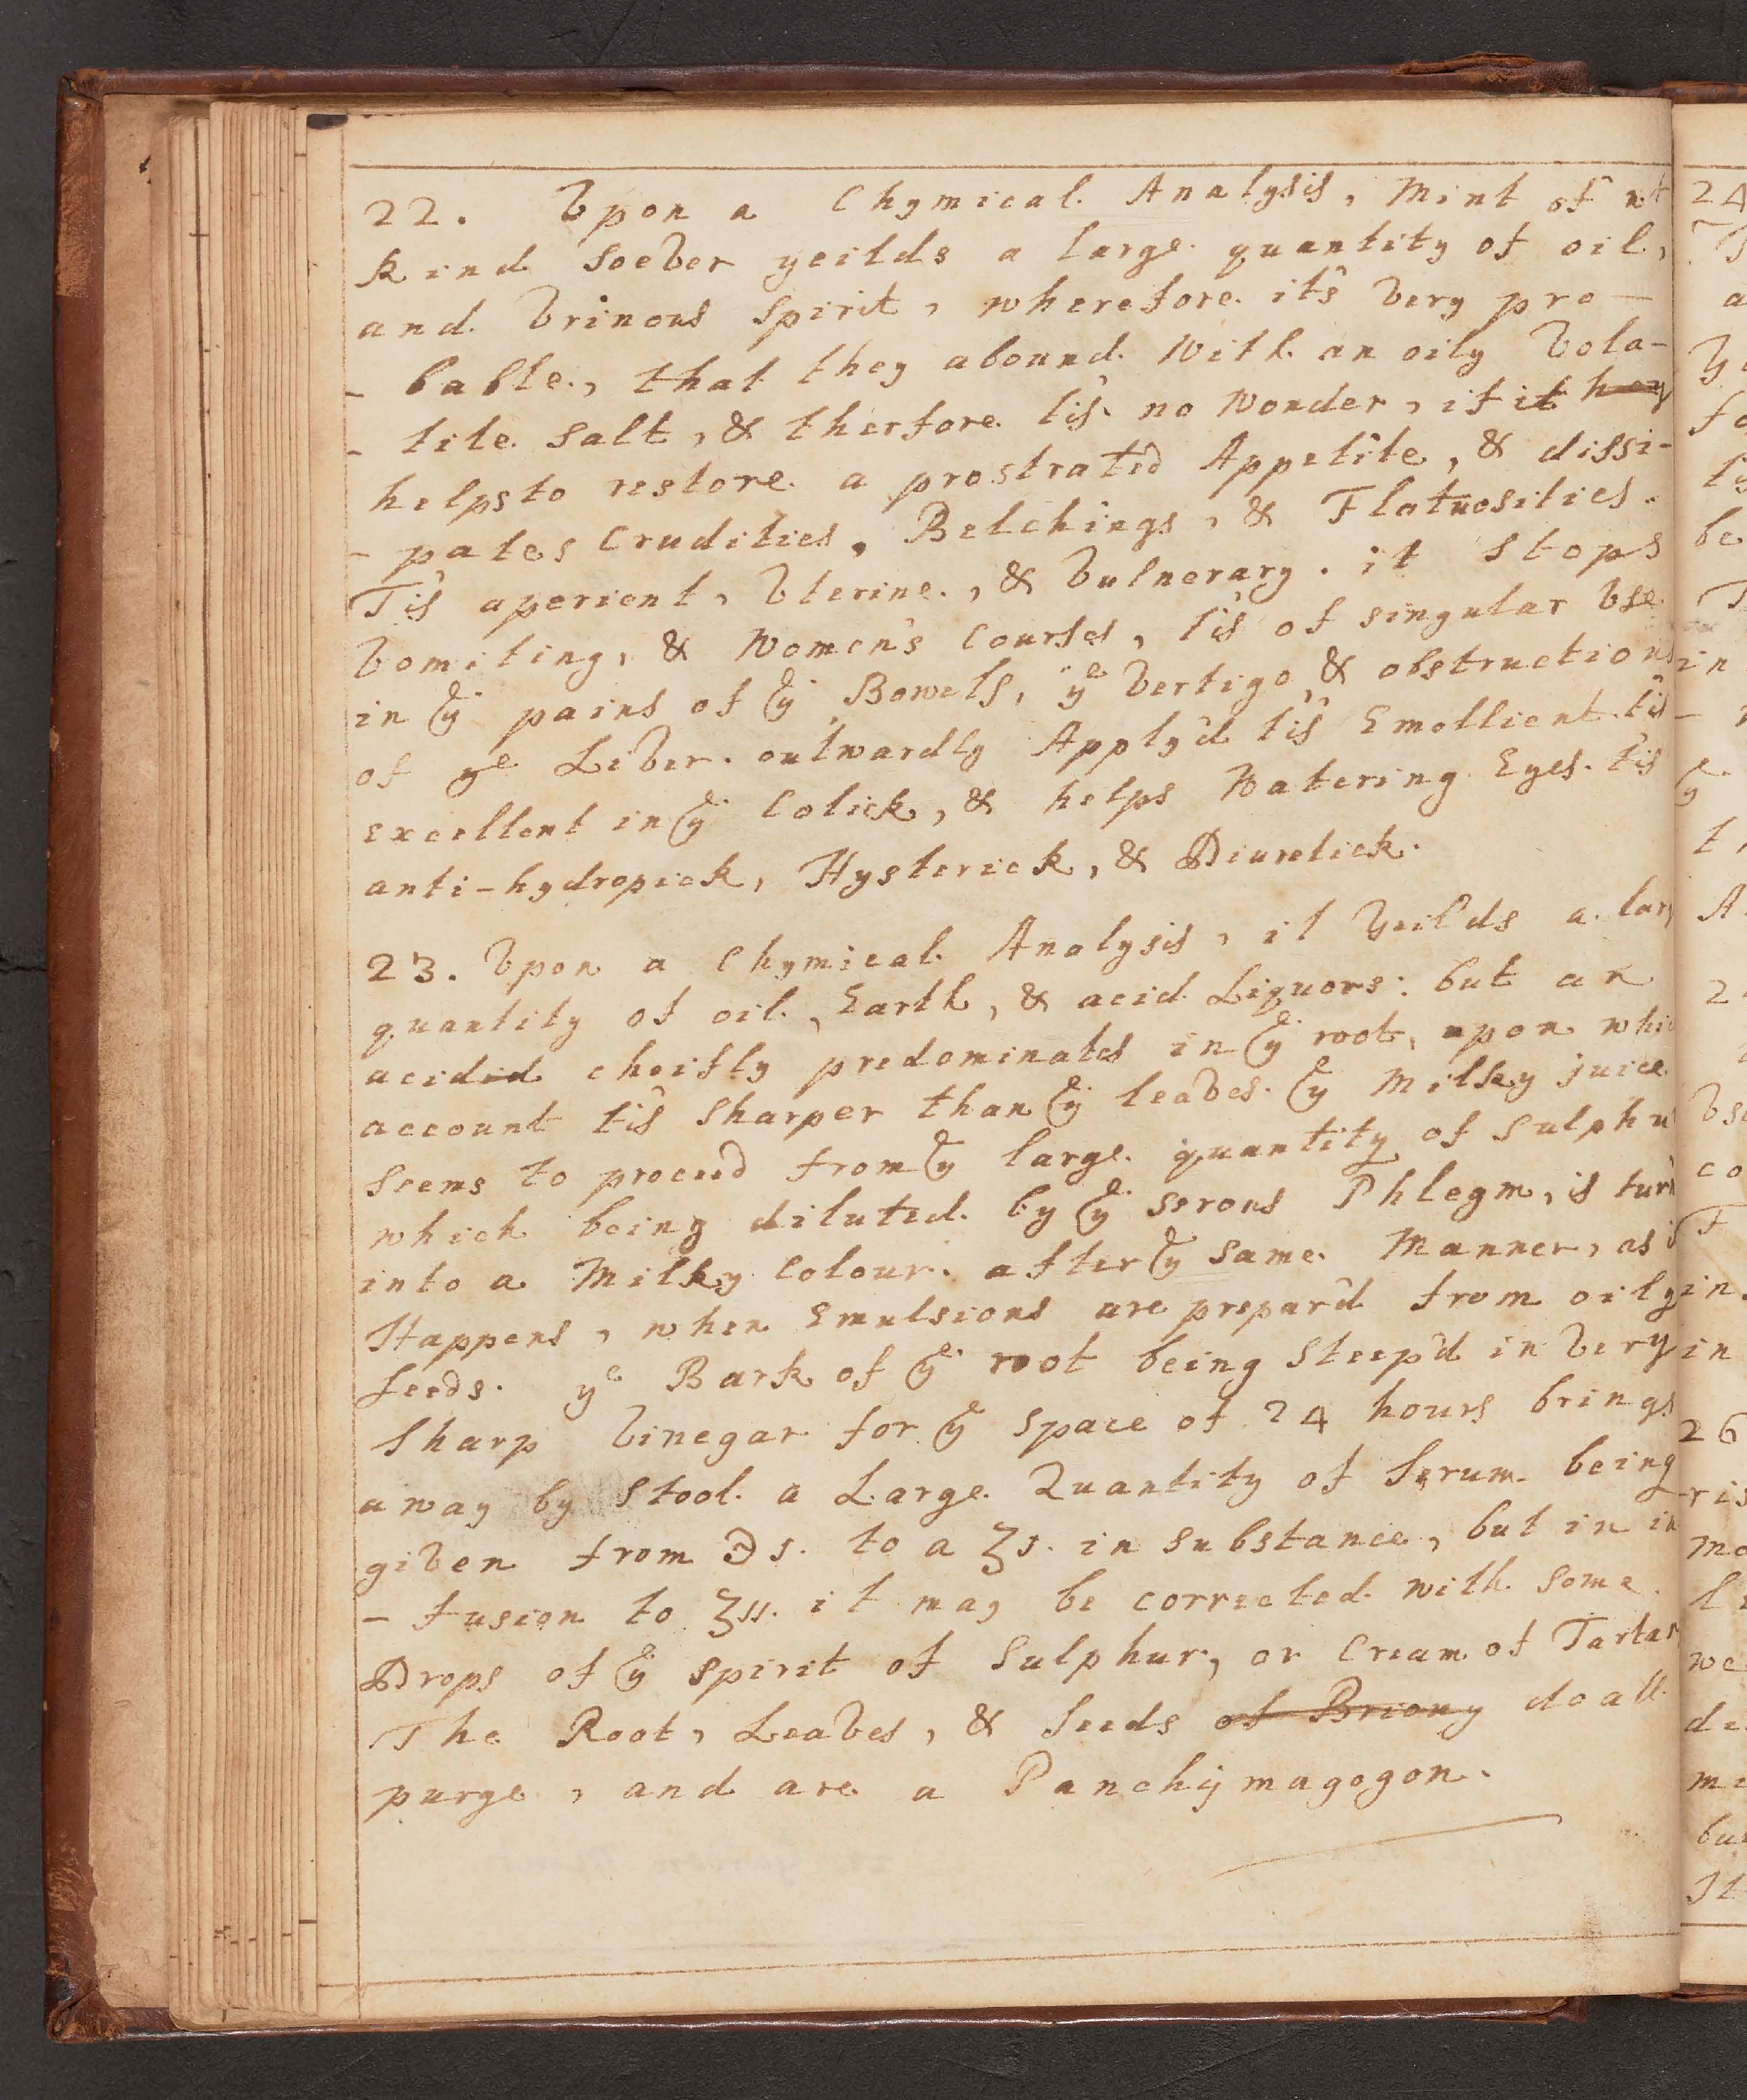 22. Vpon a Chymical Analysis, Mint of wt
kind soever yeilds a large quantity of oil,
and Vrinous Spirit, wherefore it's very pro-
- bable, that they abound With an oily Vola-
- tile Salt, & therfore tis no Wonder, if it they
helps to restore a prostrated Appetite, & dissi-
- pates Crudities, Belchings, & Flatuosities.
Tis aperient, Vterine, & Vulnerary. it stops
Vomiting, & Women's Courses, tis of singular Vse
in ye pains of ye Bowels, ye Vertigo & obstructions
of ye Liver. outwardly Apply'd tis Emollient. tis
excellent in ye Colick, & helps Watering Eyes. tis
anti-hydropick, Hysterick, & Diuretick.
23. Vpon a Chymical Analysis, it Yeilds a larg
quantity of oil, Earth, & acid Liquors: but an
acidid cheifly predominates in ye root, upon whic
account tis Sharper than ye leaves. ye Milky juice
seems to proceed from ye large quantity of Sulphu
which being diluted by ye serous Phlegm, is turn
into a Milky Colour. after ye same Manner, as i
Happens, when Emulsions are prepar'd from oily
seeds. ye Bark of ye root being Steep'd in Very
Sharp Vinegar for ye space of 24 hours brings
away by Stool a Large Quantity of Serum being
given from ℈s. to a ʒs. in substance, but in in
- fusion to ʒss. it may be corrected with some
Drops of ye spirit of Sulphur, or Cream of Tartar
The Root, Leaves, & Seeds of Briony do all
purge, and are a Panchymagogon.
24
a
fo
be
in
A
co
in
in
26
ris
mo
we
de
It